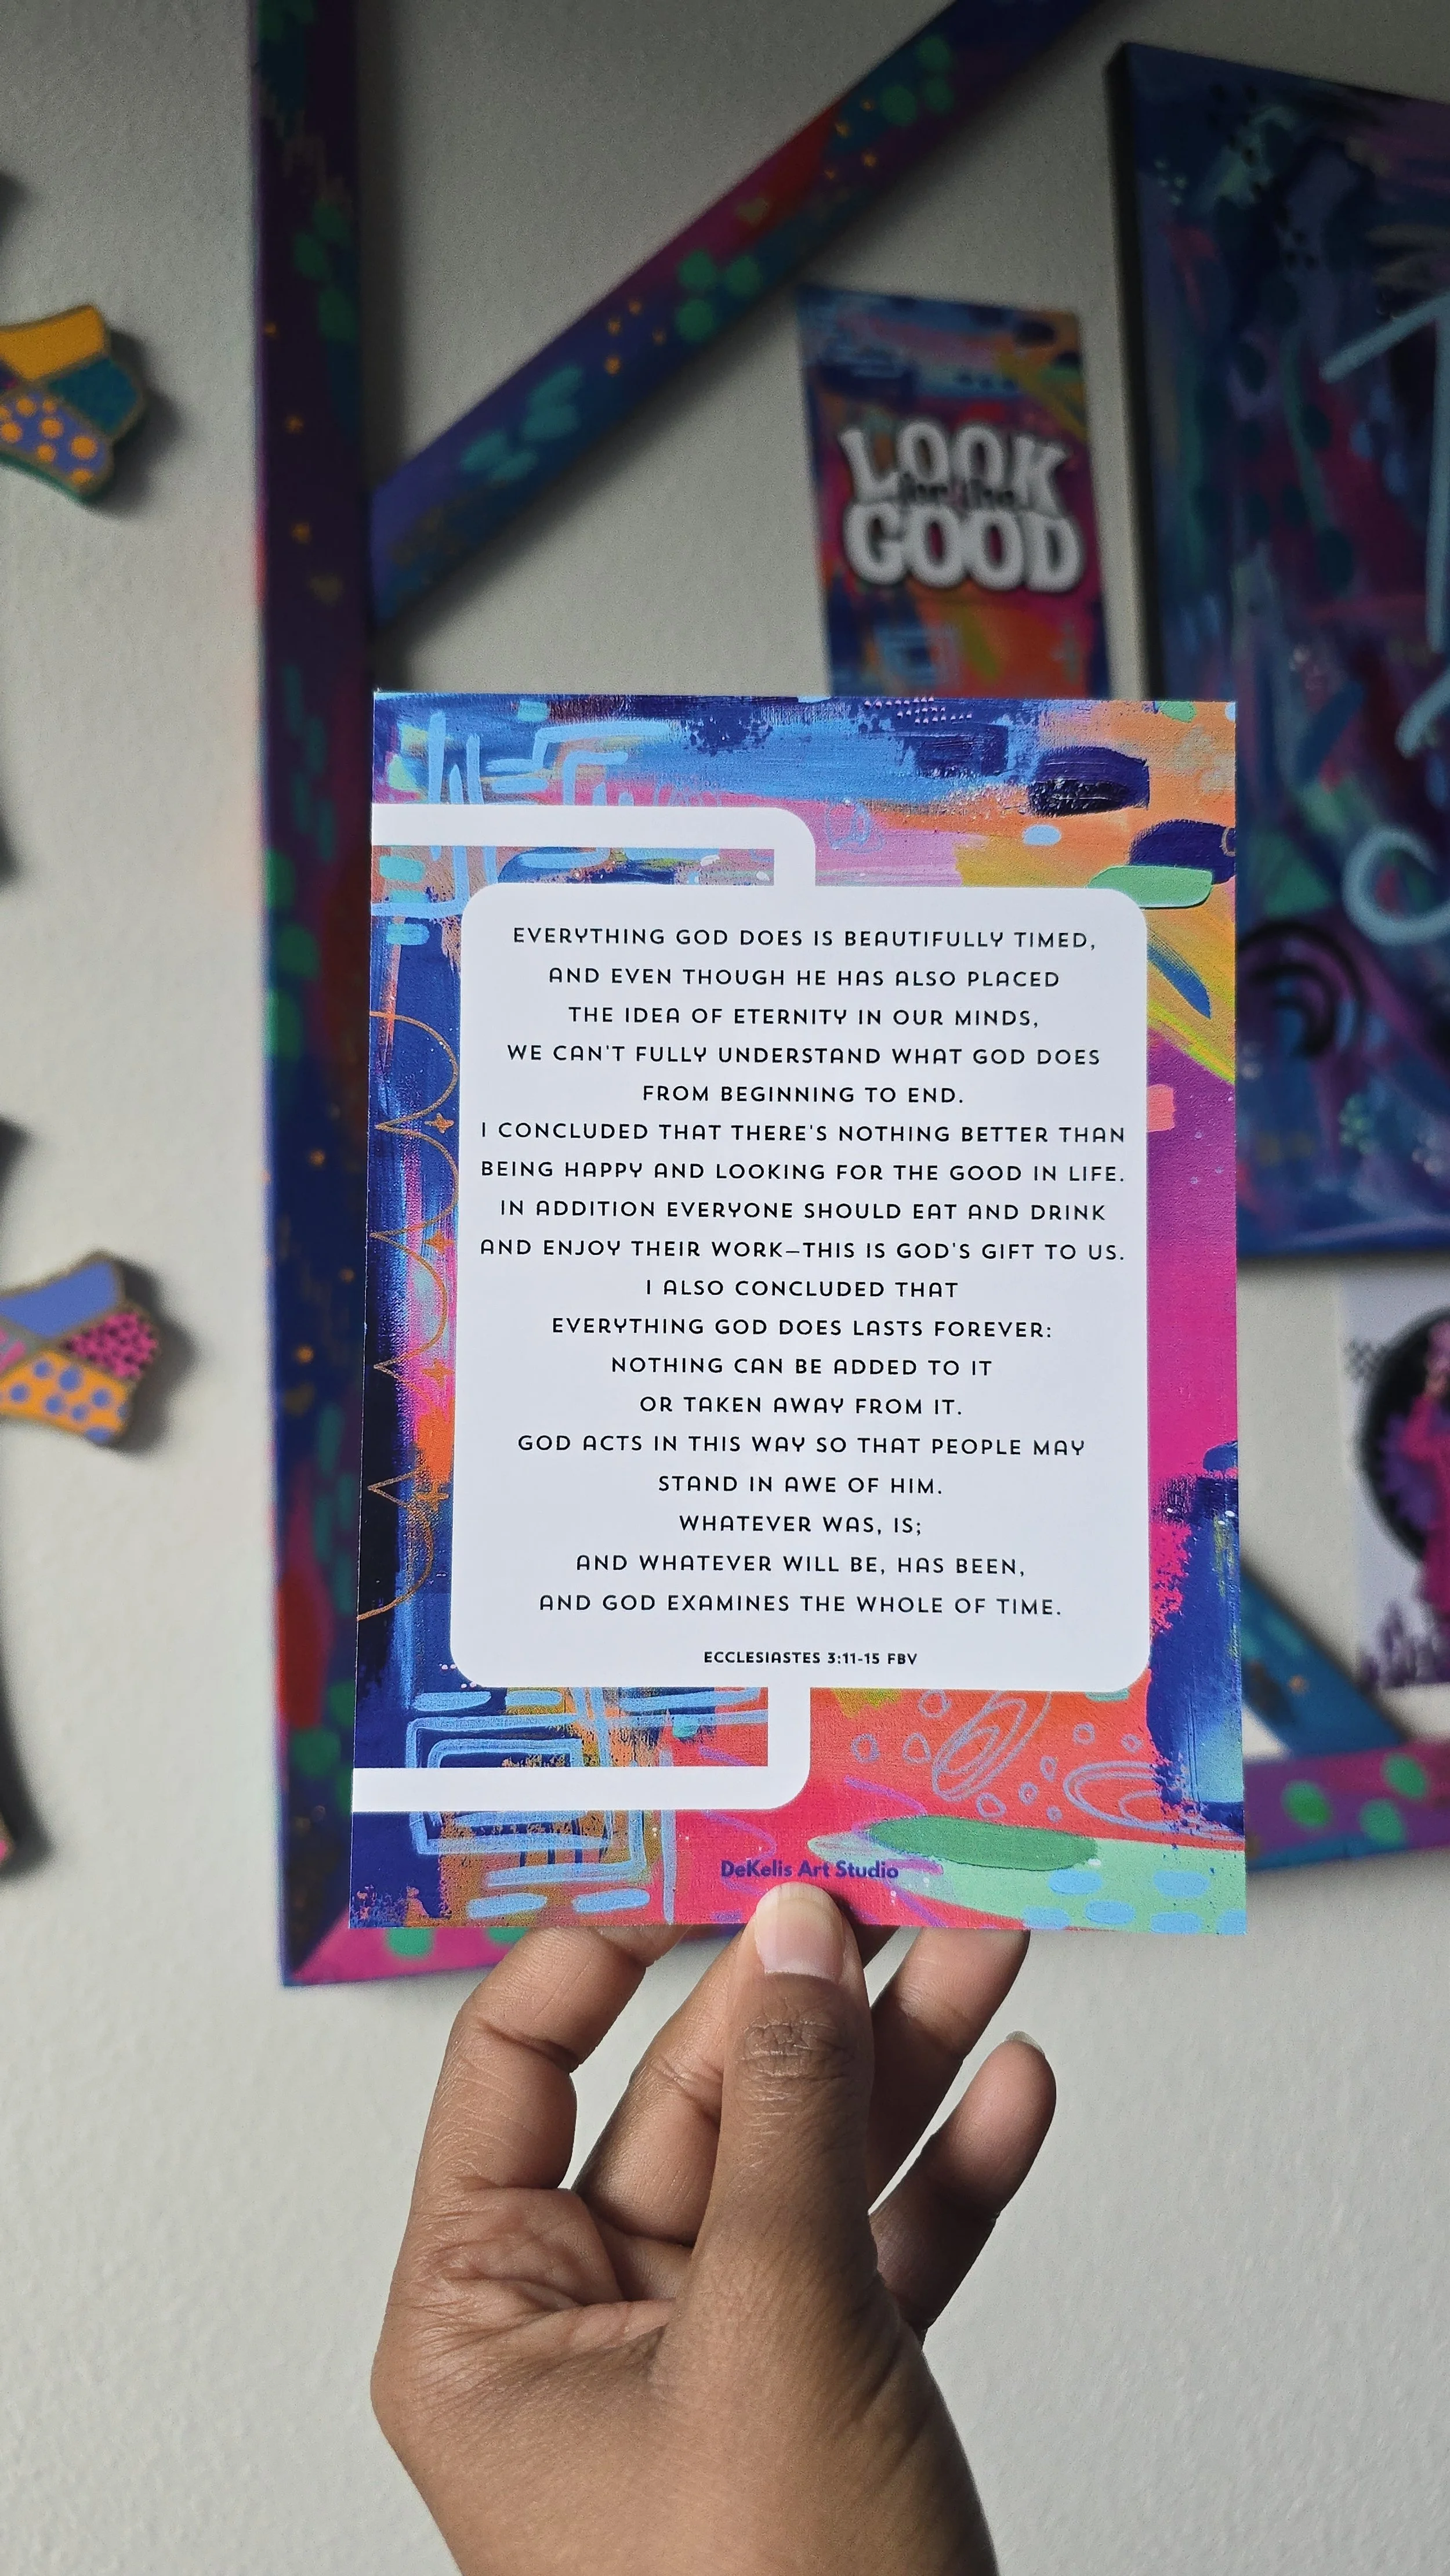 LOOK
for the
GOOD
EVERYTHING GOD DOES IS BEAUTIFULLY TIMED,
AND EVEN THOUGH HE HAS ALSO PLACED
THE IDEA OF ETERNITY IN OUR MINDS,
WE CAN'T FULLY UNDERSTAND WHAT GOD DOES
FROM BEGINNING TO END.
I CONCLUDED THAT THERE'S NOTHING BETTER THAN
BEING HAPPY AND LOOKING FOR THE GOOD IN LIFE.
IN ADDITION EVERYONE SHOULD EAT AND DRINK
AND ENJOY THEIR WORK—THIS IS GOD'S GIFT TO US.
I ALSO CONCLUDED THAT
EVERYTHING GOD DOES LASTS FOREVER:
NOTHING CAN BE ADDED TO IT
OR TAKEN AWAY FROM IT.
GOD ACTS IN THIS WAY SO THAT PEOPLE MAY
STAND IN AWE OF HIM.
WHATEVER WAS, IS;
AND WHATEVER WILL BE, HAS BEEN,
AND GOD EXAMINES THE WHOLE OF TIME.
ECCLESIASTES 3:11-15 FBV
DeKelis Art Studio